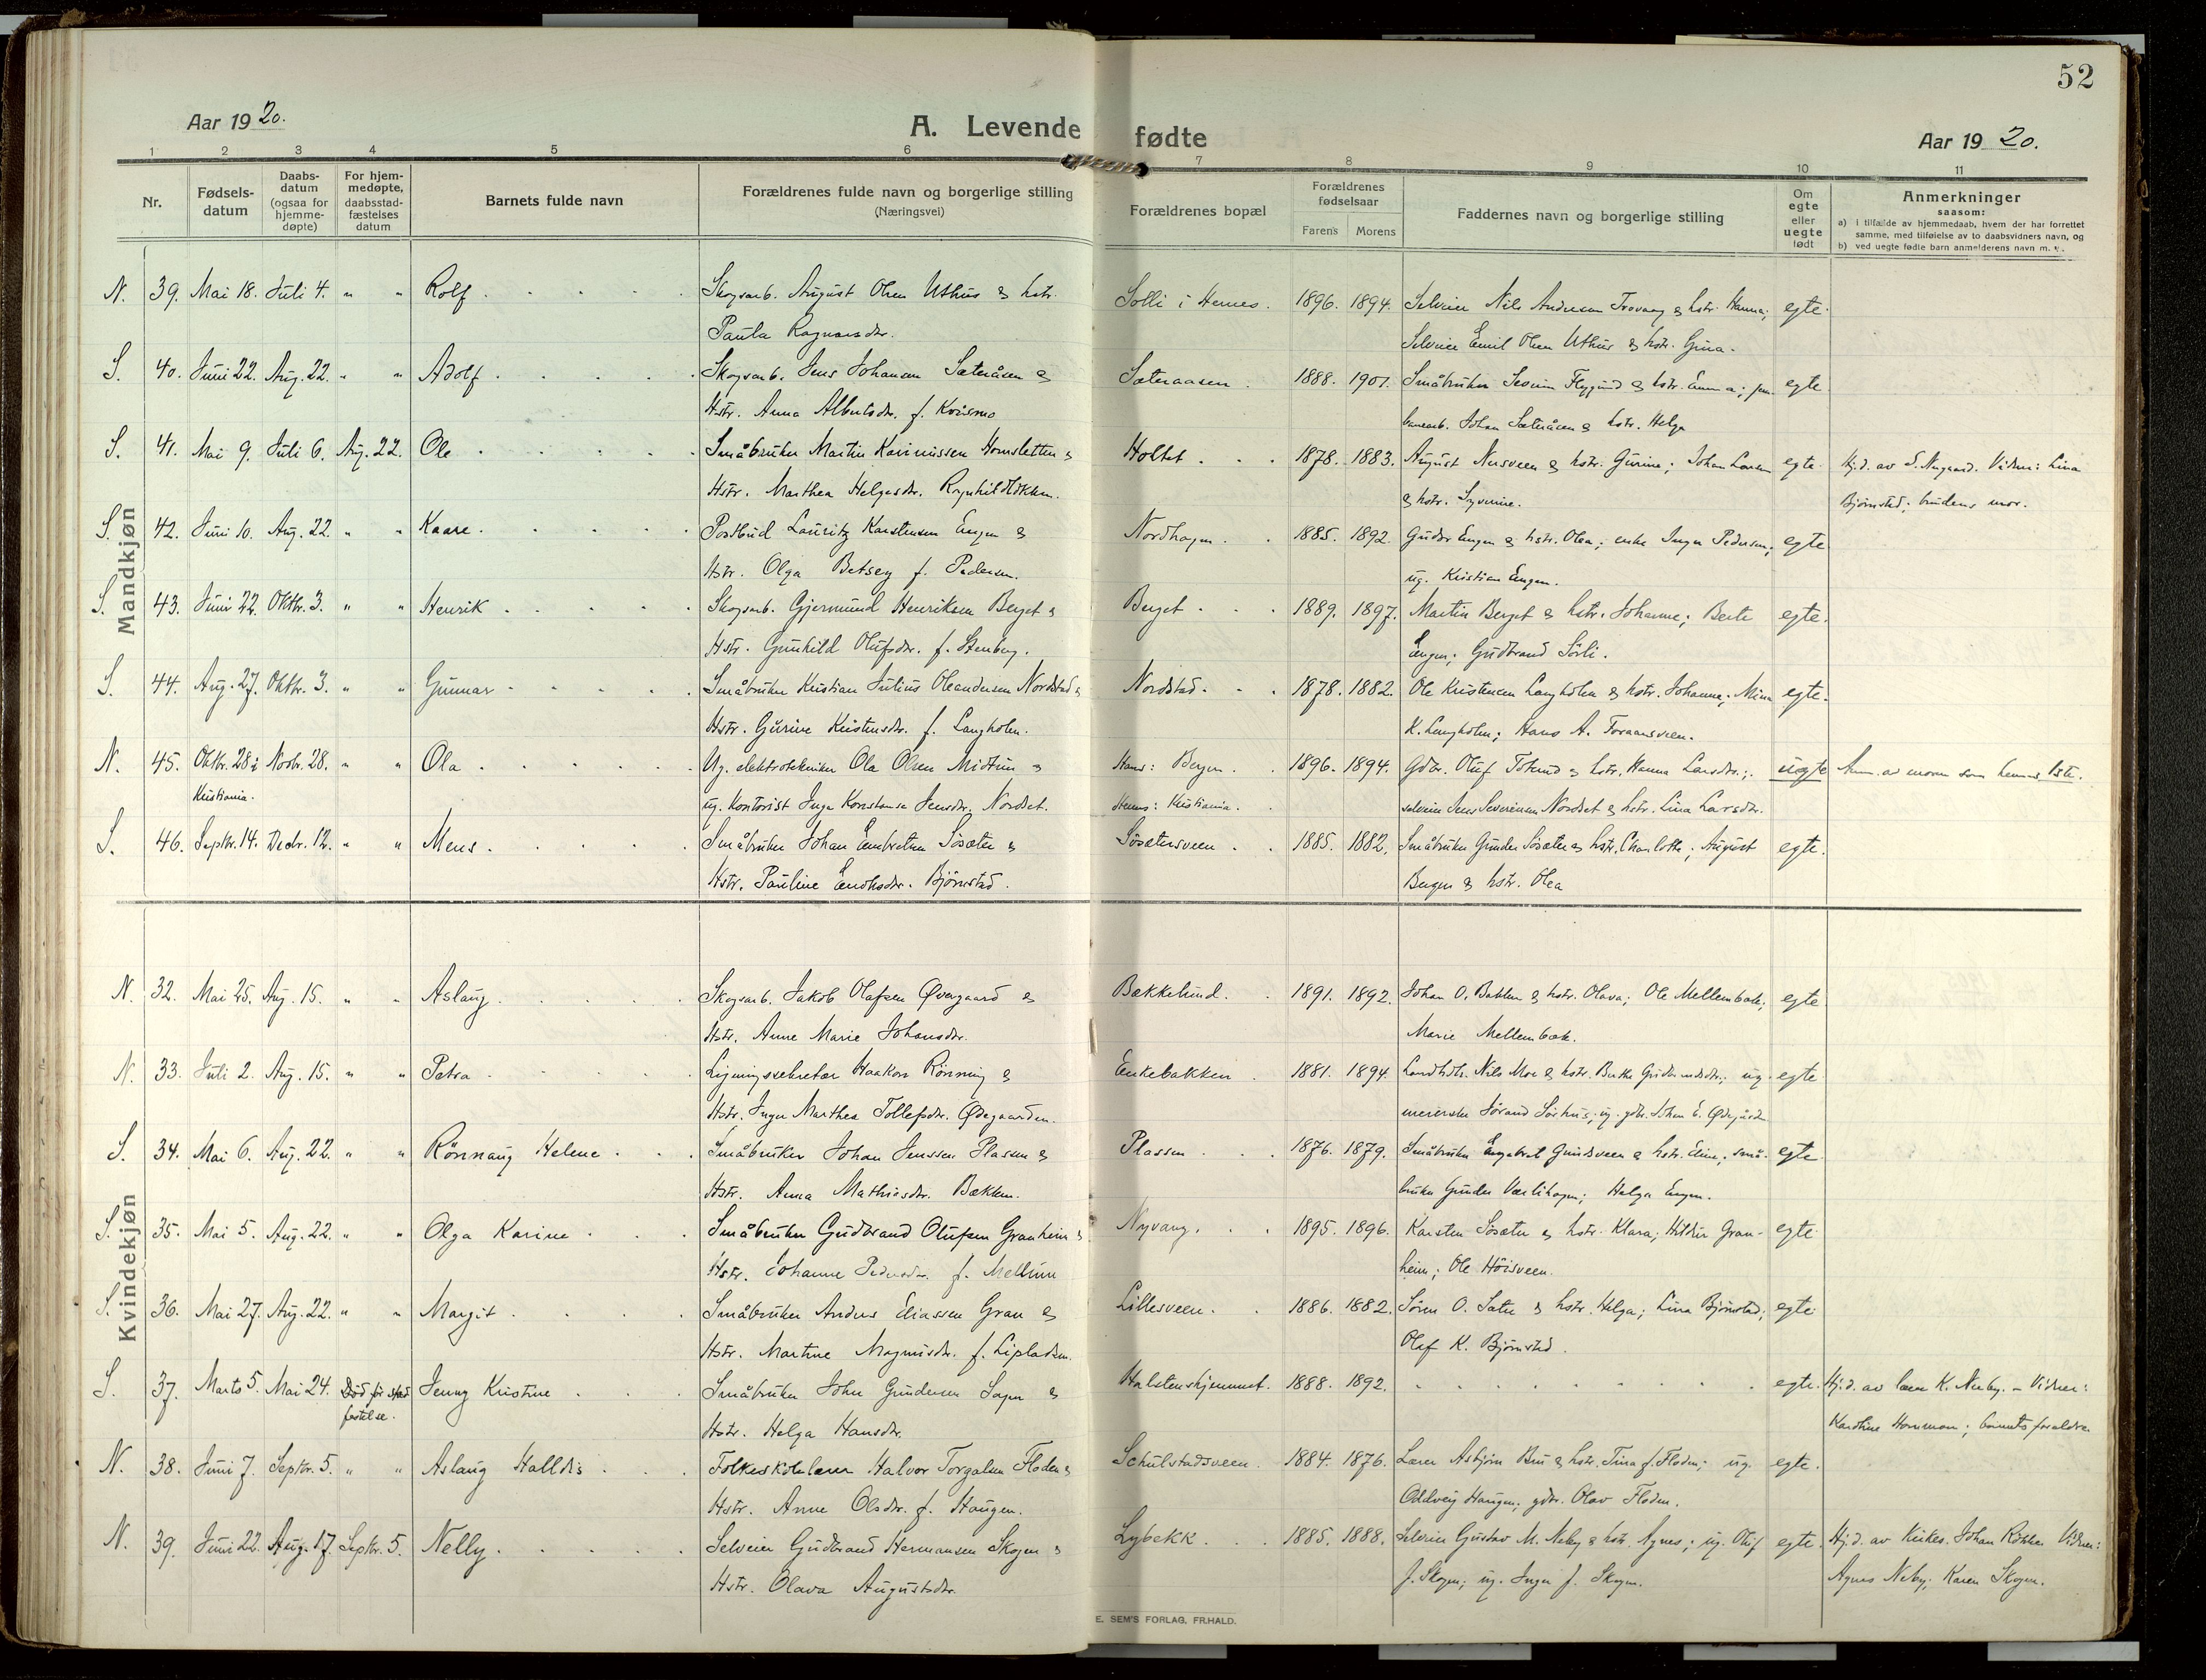 52
Aar 1920.
A. Levende fødte
Aar 1920.
1 2 3 4 5 6 7 8 9 10 11
Nr.
Fødselsdatum
Daabsdatum (ogsaa for hjemmedøpte)
For hjemmedøpte, daabsstadfæstelses datum
Barnets fulde navn
Forældrenes fulde navn og borgerlige stilling
(Næringsvei)
Forældrenes bopæl
Forældrenes fødselsaar
Farens Morens
Faddernes navn og borgerlige stilling
Om egte eller uegte født
Anmerkninger
saasom:
a) i tilfælde av hjemmedaab, hvem der har forrettet
samme, med tilføielse av to daabsvidners navn, og
b) ved uegte fødte barn anmelderens navn m. v.
Mandkjøn
N. 39. Mai 18. Juli 4. " " Rolf. Skogsarb. August Olsen Uthus & hstr. Solli i Hernes. 1896. 1894. Selveier Nils Andersen Trovaag & hstr. Hanna; egte.
Paula Ragnvarsdtr. Selveier Emil Olsen Uthus & hstr. Gina.
S. 40. Juni 22. Aug. 22. " " Adolf. Skogsarb. Jens Johansen Sæteråsen & Sæteraasen. 1888. 1901. Småbruker Flygind & hstr. Emma; egte
Hstr. Anna Albertsdtr. f. Kvismo banearb. Johan Sæteråsen & hstr. Helga
S. 41. Mai 9. Juli 6. Aug. 22. Ole. Småbruker Martin Hornsletten & Holtet. 1878. 1883. August Nusveen & hstr. Gurine; Johan Larsen egte. Hj.d. av S. Nygaard. Vidner: Lina
Hstr. Marthea Helgesdtr. & hstr. Syverine. Bjørnstad;
S. 42. Juni 10. Aug. 22. " " Kaare. Postbud Lauritz Karstensen Engen & Nordhagen. 1885. 1892. Gudbr Engen & hstr. Olea; enke Inga Pedersen; egte
Hstr. Olga Betsey f. Pedersen. ug. Kristian Engen.
S. 43. Juni 22. Oktbr. 3. " " Henrik. Skogsarb. Gjermund Henriksen Berget & Berget. 1889. 1897. Martin Berget & hstr. Johanne; Berte egte.
Hstr. Gunhild Olufsdtr. f. Stenberg. Engen; Gudbrand Sörli.
S. 44. Aug. 27. Oktbr. 3. " " Gunnar. Småbruker Kristian Julius Oleandersen Nordstad & Nordstad. 1878. 1882. Ole Kristensen Langholen & hstr. Johanne; Mina egte.
Hstr. Gurine Kristensdtr. f. Langholen. K. Langholen; Hans A. Foraasveen.
N. 45. Oktbr. 28 i Novbr. 28. " " Ola. Ug. elektrotekniker Ola Olsen Midtun & Hans: Bergen. 1896. 1894. Gdbr. Oluf Totend & hstr. Hanna Larsdtr.; uegte Anm. av moren som hennes 1ste.
Kristiania. ug. Kontorist Inga Konstanse Jensdtr. Nordset. Hennes: Kristiania. selveier Jens Severinsen Nordset & hstr. Lina Larsdtr.
S. 46. Septbr. 14. Decbr. 12. " " Mens. Småbruker Johan Embretsen Sösæter & Sösætersveen. 1885. 1882. Småbruker Gunder Sösæter & hstr. Charlotte; August egte.
Hstr. Pauline Enoksdtr. Björnstad. Bergen & hstr. Olea
Kvindekjøn
N. 32. Mai 25. Aug. 15. " " Aslaug. Skogsarb. Jakob Olafsen Øvergaard & Bækkelund. 1891. 1892. Johan O. Bakken & hstr. Olava; Ole Mellembak; egte
Hstr. Anne Marie Johansdtr. Marie Mellembak.
N. 33. Juli 2. Aug. 15. " " Petra. Ligningssekretær Haakon Rönning & Enkebakken. 1881. 1894. Landhdlr. Nils Moe & hstr. Berthe Gudbrandsdtr.; ug. egte
Hstr. Inga Marthea Tollefsdtr. Ødegaarden. meierske Jörand Sörhus; ug. gdbr. Johan E. Ødegården
S. 34. Mai 6. Aug. 22. " " Rönnaug Helene. Småbruker Johan Jenssen Plassen & Plassen. 1876. 1879. Småbruker Engebret Gundsveen & hstr. Eline; små- egte
Hstr. Anna Mathiasdtr. Bækken. bruker Gunder Værlihagen; Helga Engen.
S. 35. Mai 5. Aug. 22. " " Olga Karine. Småbruker Gudbrand Olufsen Granheim & Nyvang. 1895. 1896. Karsten Sösæter & hstr. Klara; Hildur Gran- egte
Hstr. Johanne Pedersdtr. f. Mellum heim; Ole Höisveen.
S. 36. Mai 27. Aug. 22. " " Margit. Småbruker Anders Eliassen Gran & Lillesveen. 1886. 1882. Sören O. Sæter & hstr. Helga; Lina Björnstad; egte
Hstr. Martine Magnusdtr. f. Lipladsen. Olaf K. Björnstad.
S. 37. Marts 5. Mai 24. Död för stad- Jenny Kristine. Småbruker John Gundersen Sagen & Halstenshjemmet. 1888. 1892. egte. Hj.d. av lærer K. Neeby. – Vidner:
festelse. Hstr. Helga Hansdtr. Karoline Hornmoen; barnets forældre.
N. 38. Juni 7. Septbr. 5. " " Aslaug Halldis. Folkeskolelærer Halvor Torgalsen Floden & Schulstadsveen. 1884. 1876. Lærer Asbjörn Bru & hstr. Tina f. Floden; ug. egte.
Hstr. Anne Olsdtr. f. Haugen. Oddveig Haugen; gdbr. Olav Floden.
N. 39. Juni 22. Aug. 17. Septbr. 5. Nelly. Selveier Gudbrand Hermansen Skogen & Lybekk. 1885. 1888. Selveier Gustav M. Neby & hstr. Agnes; ug. Oluf egte. Hj.d. av Kirkes. Johan Rökken Vidner:
Hstr. Olava Augustsdtr. J. Skogen; ug. Inga J. Skogen. Agnes Neby; Karen Skogen.
E. SEM'S FORLAG, FR.HALD.